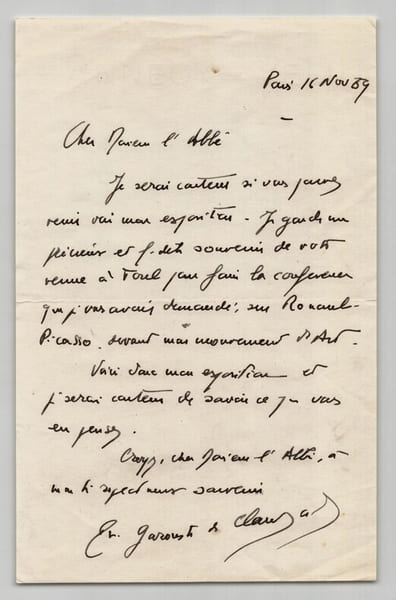 Paris 16 Nov 59
Cher Monsieur l'Abbé
Je serai content si vous pouvez
venir voir mon exposition - Je garde un
et souvenir de votre
venue à Toul pour faire la conférence
que j'vous avais demandé, sur Rouault-
Picasso, devant mon mouvement d'Art.
Voici donc mon exposition et
j'serai content de savoir ce q. vous
en pensez.
Croyez, cher Monsieur l'Abbé, à
mon souvenir